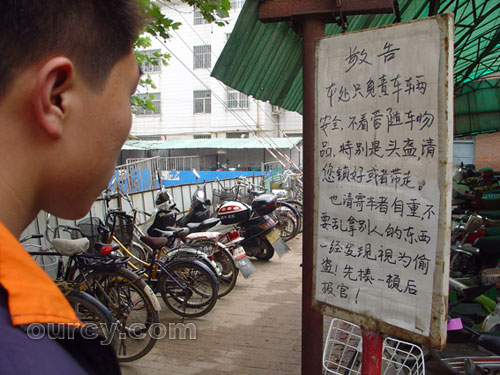 敬告
本处只负责车辆
安全，不看管随车物
品，特别是头盔请
您锁好或者带走。
也请寄者自重不
要乱拿别人的东西
一经发现视为偷
盗！先揍一顿后
报官！
ourcy.com